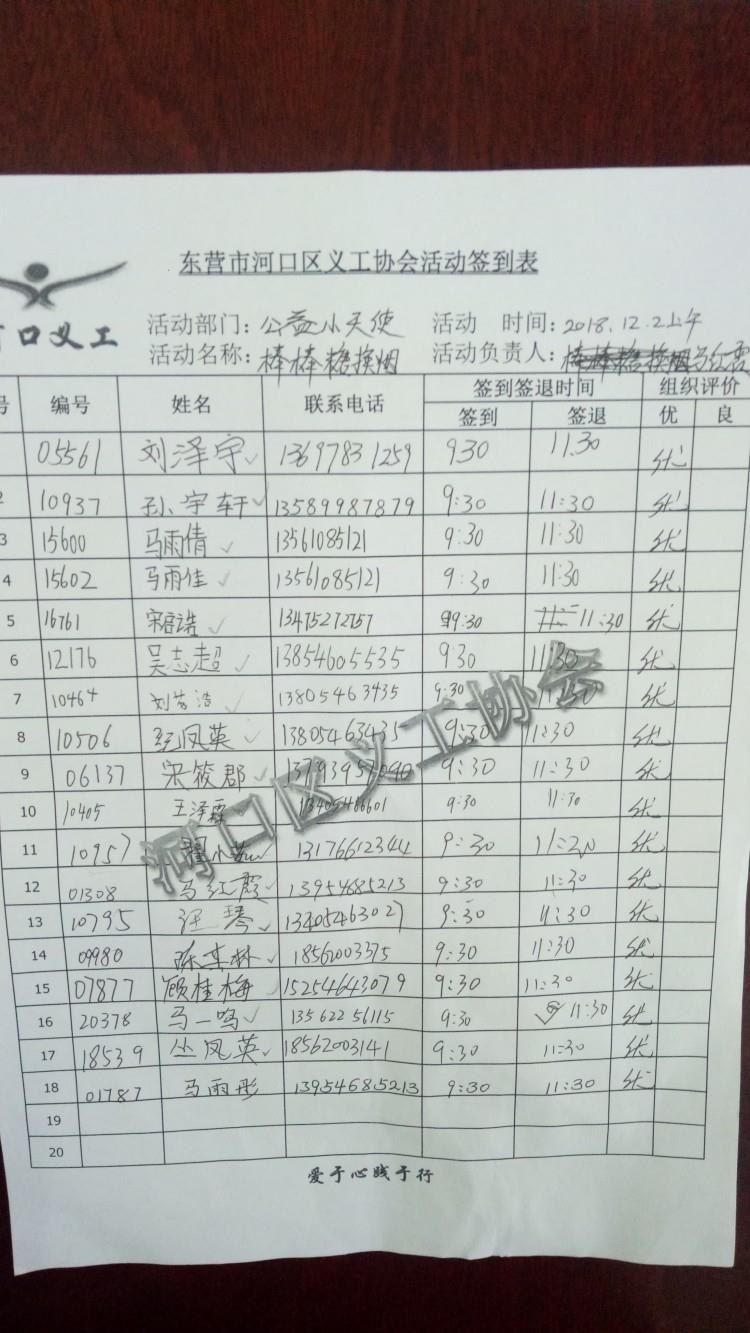 东营市河口区义工协会活动签到表
口义工
活动部门：公益小天使 活动 时间：2018.12.2上午
活动名称：棒棒糖换烟 活动负责人：马红霞
号 编号 姓名 联系电话 签到签退时间 组织评价
签到 签退 优 良
05561 刘泽宇 13697831259 9:30 11:30 优
2 10937 孙宇轩 13589987879 9:30 11:30 优
3 15600 马雨倩 13561085121 9:30 11:30 优
4 15602 马雨佳 13561085121 9:30 11:30 优
5 16761 13475272757 9:30 11:30 优
6 12176 吴志超 13854605535 9:30 11:30 优
7 10464 13805463435 9:30 优
8 10506 凤英 13805463435 9:30 11:30 优
9 06137 宋筱郡 9:30 11:30 优
10 10405 王泽霖 13405486601 9:30 11:30 优
11 10957 13176612344 9:30 优
12 01308 马红霞 13954685213 9:30 11:30 优
13 10795 汪琴 13405463027 9:30 11:30 优
14 09980 18562003375 9:30 11:30 优
15 07877 顾桂梅 15254643079 9:30 11:30 优
16 20378 马一鸣 13562256115 9:30 11:30 优
17 18539 丛凤英 18562003141 9:30 11:30 优
18 01787 马雨彤 13954685213 9:30 11:30 优
19
20
爱于心践于行
河口区义工协会